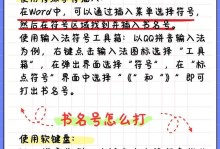 在Word中，可以通过插入菜单选择符号，
然后在符号区域找到并插入书名号。
使用输入法符号工具箱：以QQ拼音输入法
为例，右键点击输入法图标选择“工具
箱”，在弹出界面选择“符号”，在“标
点符号”界面中选择“《”和“》”即可
打出书名号。
书名号怎么打
使用软键盘：